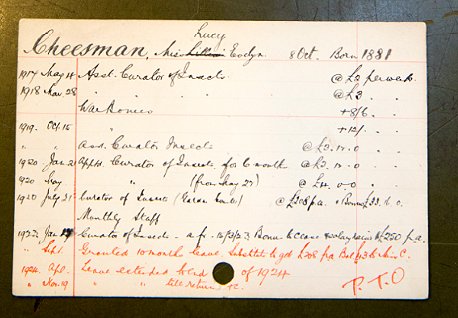 Lucy
Cheesman, Miss Lillian Evelyn 8 Oct. Born 1881
1917 May 14 Asst. Curator of Insects @ £2 per week.
1918 Nov. 28 " " @ £3 " "
War Bonus +8/6 " "
1919. Oct. 15 +12/- " "
" " Ass. Curator Insects @ £3.
1920 Jan. 21 Appt. Curator of Insects for 6 month @ £3.
1920 May " (from May 27) @ £4. 0-0
1920 July 31 Curator of Insects £208 p.a. + Bonus
Monthly Staff
Jan. Curator of Insects a.f. Bonus to cease & salary £250 p.a.
" Sept. Granted 10 months leave. Substitute to get £208 p.a. Bal
1924. Apl. Leave extended to end of 1924
" Nov. 19 " " till return
P.T.O